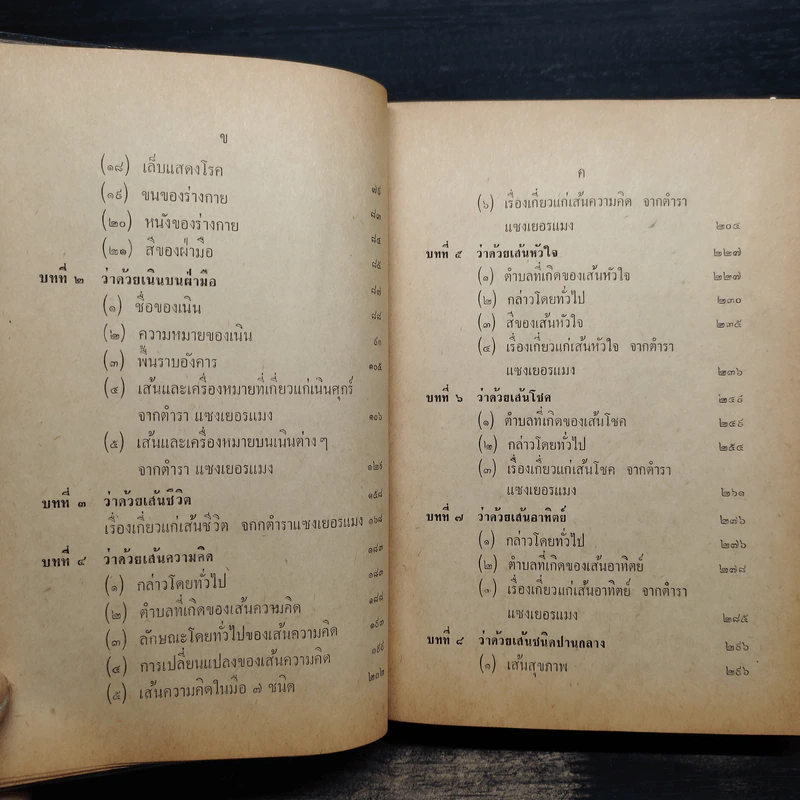 ข
(๑๘) เล็บแสดงโรค ๗๕
(๑๙) ขนของร่างกาย ๘๓
(๒๐) หนังของร่างกาย ๘๔
(๒๑) สีของฝ่ามือ ๘๕
บทที่ ๒ ว่าด้วยเนินบนฝ่ามือ ๘๗
(๑) ชื่อของเนิน ๘๘
(๒) ความหมายของเนิน ๙๑
(๓) พื้นราบอังคาร ๑๐๕
(๔) เส้นและเครื่องหมายที่เกี่ยวแก่เนินศุกร์
จากตำรา แซงเยอรแมง ๑๐๖
(๕) เส้นและเครื่องหมายบนเนินต่าง ๆ
จากตำรา แซงเยอรแมง ๑๒๑
บทที่ ๓ ว่าด้วยเส้นชีวิต ๑๕๘
เรื่องเกี่ยวแก่เส้นชีวิต จกกตำราแซงเยอรแมง ๑๖๘
บทที่ ๔ ว่าด้วยเส้นความคิด ๑๘๓
(๑) กล่าวโดยทั่วไป ๑๘๓
(๒) ตำบลที่เกิดของเส้นความคิด ๑๘๘
(๓) ลักษณะโดยทั่วไปของเส้นความคิด ๑๙๓
(๔) การเปลี่ยนแปลงของเส้นความคิด ๑๙๙
(๕) เส้นความคิดในมือ ๗ ชนิด ๒๐๒
ค
(๖) เรื่องเกี่ยวแก่เส้นความคิด จากตำรา
แซงเยอรแมง ๒๐๔
บทที่ ๕ ว่าด้วยเส้นหัวใจ ๒๒๗
(๑) ตำบลที่เกิดของเส้นหัวใจ ๒๒๗
(๒) กล่าวโดยทั่วไป ๒๓๐
(๓) สีของเส้นหัวใจ ๒๓๕
(๔) เรื่องเกี่ยวแก่เส้นหัวใจ จากตำรา
แซงเยอรแมง ๒๓๖
บทที่ ๖ ว่าด้วยเส้นโชค ๒๔๙
(๑) ตำบลที่เกิดของเส้นโชค ๒๔๙
(๒) กล่าวโดยทั่วไป ๒๕๔
(๓) เรื่องเกี่ยวแก่เส้นโชค จากตำรา
แซงเยอรแมง ๒๖๑
บทที่ ๗ ว่าด้วยเส้นอาทิตย์ ๒๗๖
(๑) กล่าวโดยทั่วไป ๒๗๖
(๒) ตำบลที่เกิดของเส้นอาทิตย์ ๒๗๘
เรื่องเกี่ยวแก่เส้นอาทิตย์ จากตำรา
แซงเยอรแมง ๒๘๕
บทที่ ๘ ว่าด้วยเส้นชนิดปานกลาง ๒๙๖
(๑) เส้นสุขภาพ ๒๙๖